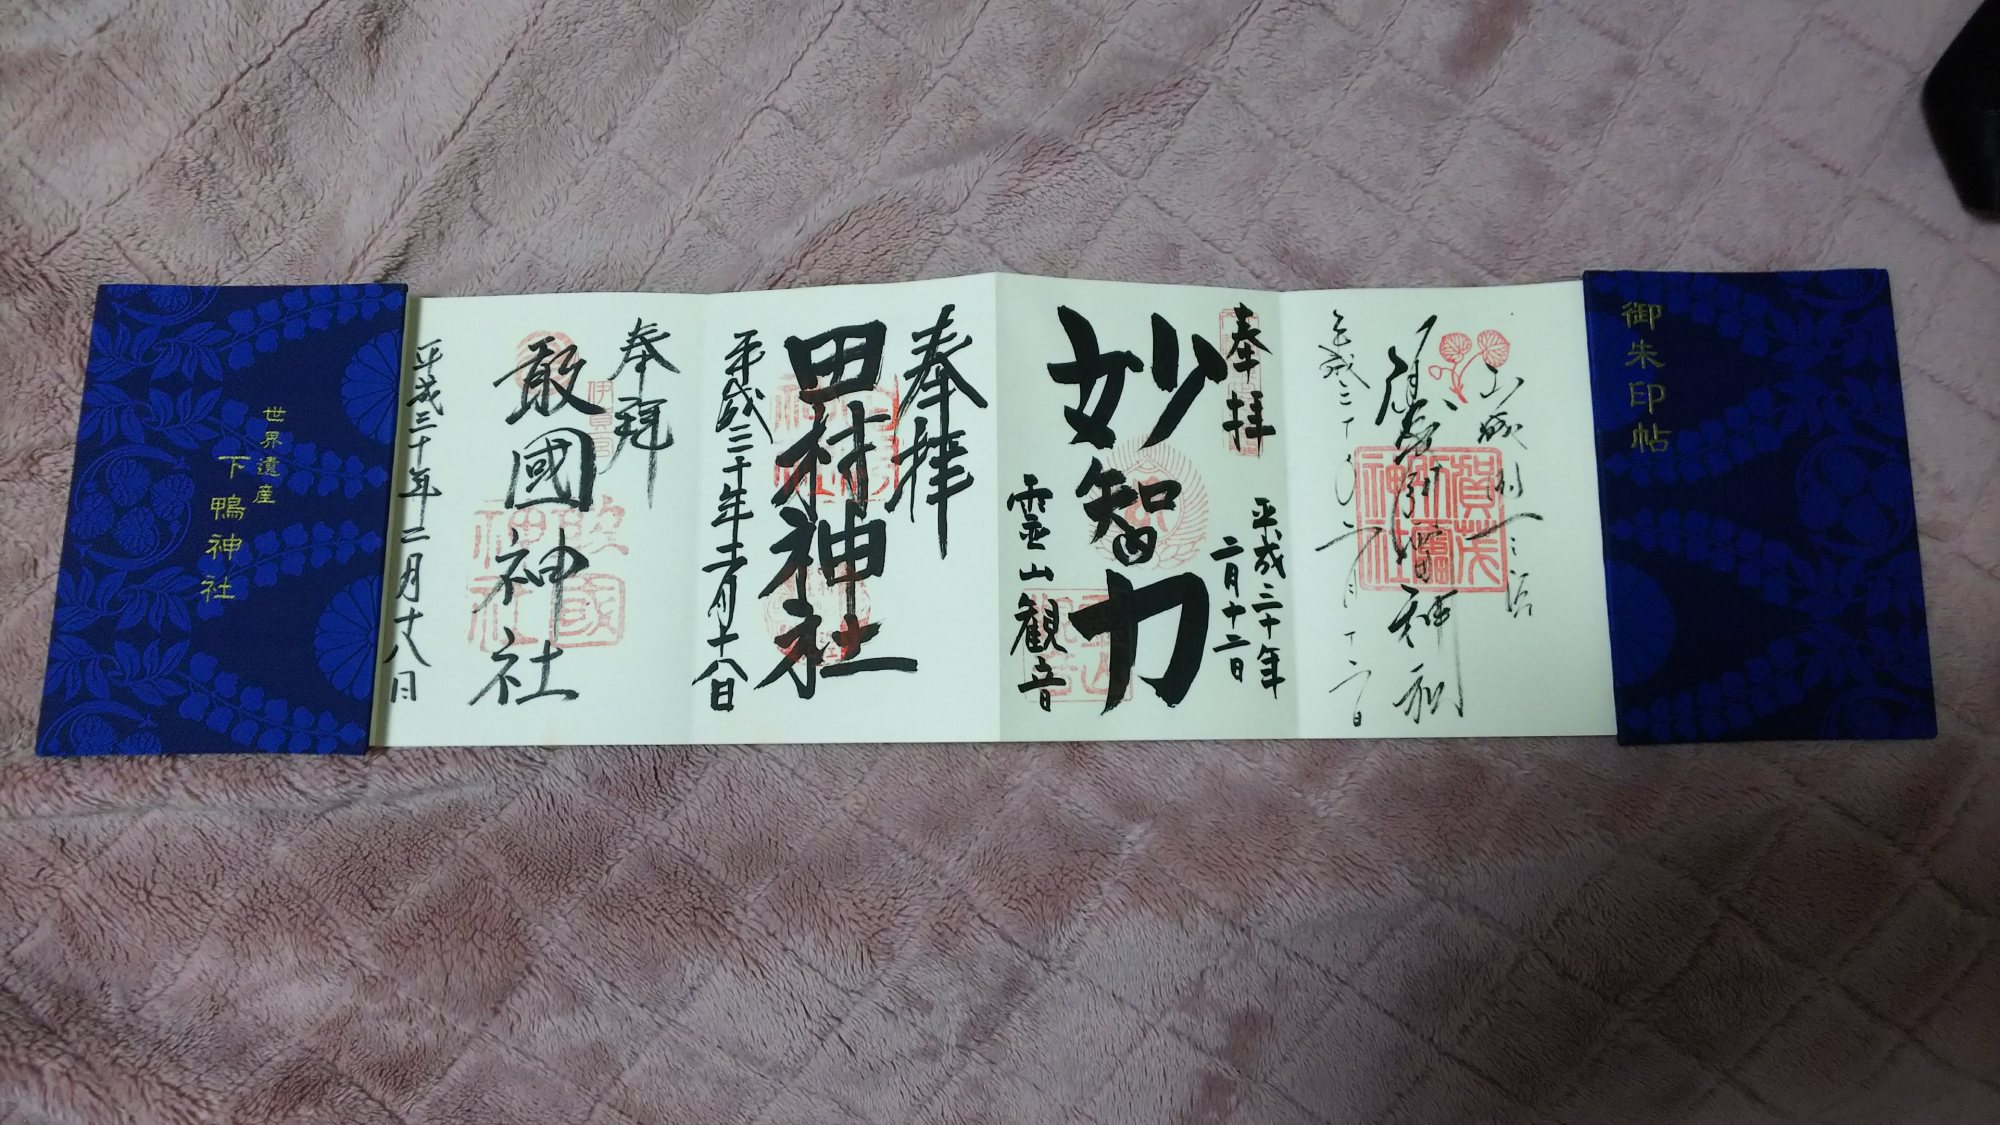 御朱印帖
山城国一之宮
賀茂御祖神社
平成三十年二月十二日
奉拝
平成三十年
二月十二日
妙智力
霊山観音
奉拝
田村神社
平成三十年二月十八日
奉拜
伊賀
敢國神社
敢國神社
平成三十年二月十八日
世界遺産
下鴨神社